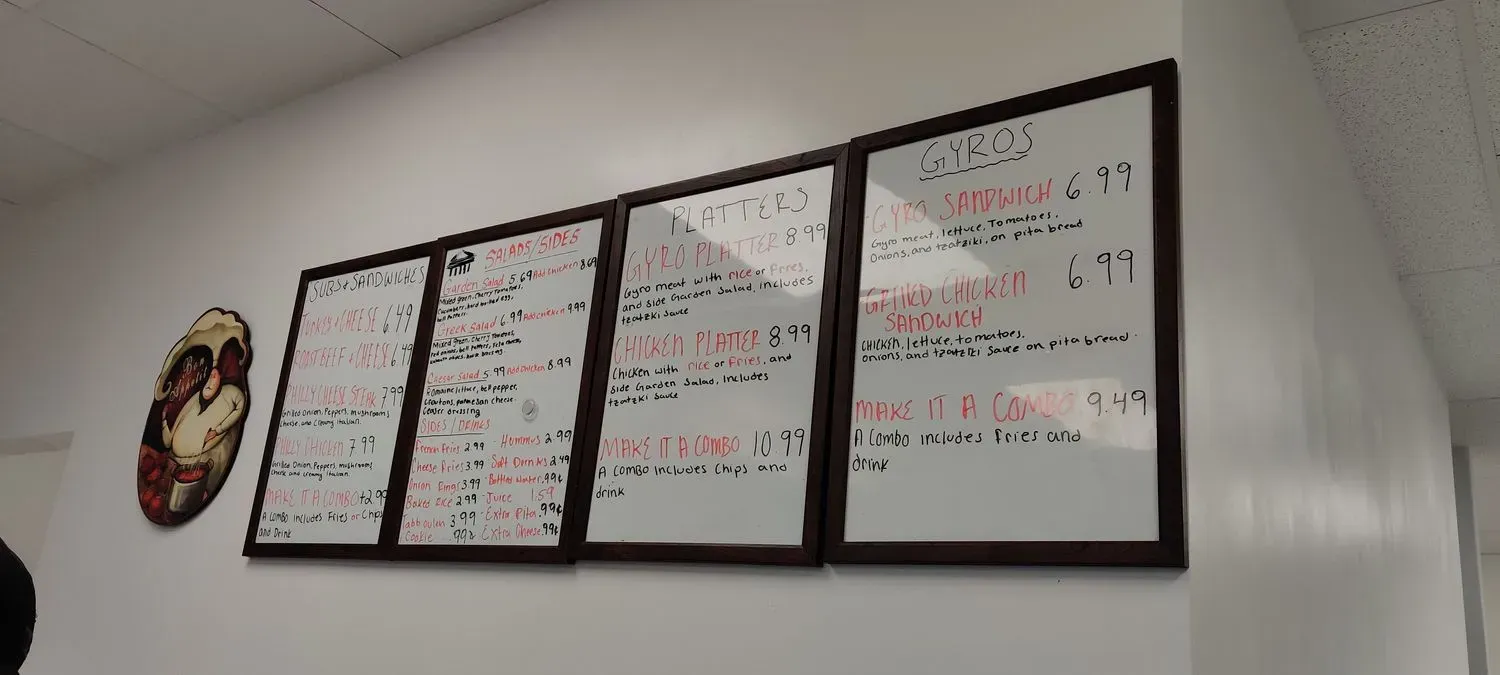 Bon
Appétit
SUBS & SANDWICHES
TURKEY & CHEESE 6.49
ROAST BEEF & CHEESE 6.49
PHILLY CHEESE STEAK 7.99
Grilled Onion, Peppers, mushrooms
cheese, and creamy Italian.
PHILLY CHICKEN 7.99
Grilled Onion, Peppers, mushroom
cheese and creamy Italian.
MAKE IT A COMBO +2.99
A COMBO INCLUDES Fries or Chips
and Drink
SALADS/SIDES
Garden Salad 5.69 Add chicken 8.69
Mixed green, Cherry Tomatoes,
Cucumbers, hard boiled egg,
bell Peppers.
Greek Salad 6.99 Add chicken 9.99
Mixed Green, Cherry Tomatoes,
red onions, bell Peppers, feta cheese,
Caesar Salad 5.99 Add chicken 8.99
Romaine lettuce, bell pepper,
Croutons, parmesan cheese.
Ceaser dressing
SIDES/DRINKS
French Fries 2.99 - Hummus 2.99
Cheese Fries 3.99 Soft Drinks 2.49
Onion Rings 3.99 Bottled Water .99¢
Baked Rice 2.99 Juice 1.59
Tabbouleh 3.99 Extra Pita .99¢
Cookie .99¢ Extra Cheese .99¢
PLATTERS
GYRO PLATTER 8.99
Gyro meat with rice or Fries,
and side Garden Salad, includes
tzatzki sauce
CHICKEN PLATTER 8.99
Chicken with rice or Fries, and
side Garden Salad, includes
tzatzki sauce
MAKE IT A COMBO 10.99
A COMBO Includes Chips and
drink
GYROS
GYRO SANDWICH 6.99
Gyro meat, lettuce, Tomatoes,
Onions, and tzatziki, on pita bread
GRILLED CHICKEN 6.99
SANDWICH
CHICKEN, lettuce, tomatoes,
onions, and tzatziki sauce on pita bread.
MAKE IT A COMBO 9.49
A Combo includes fries and
drink